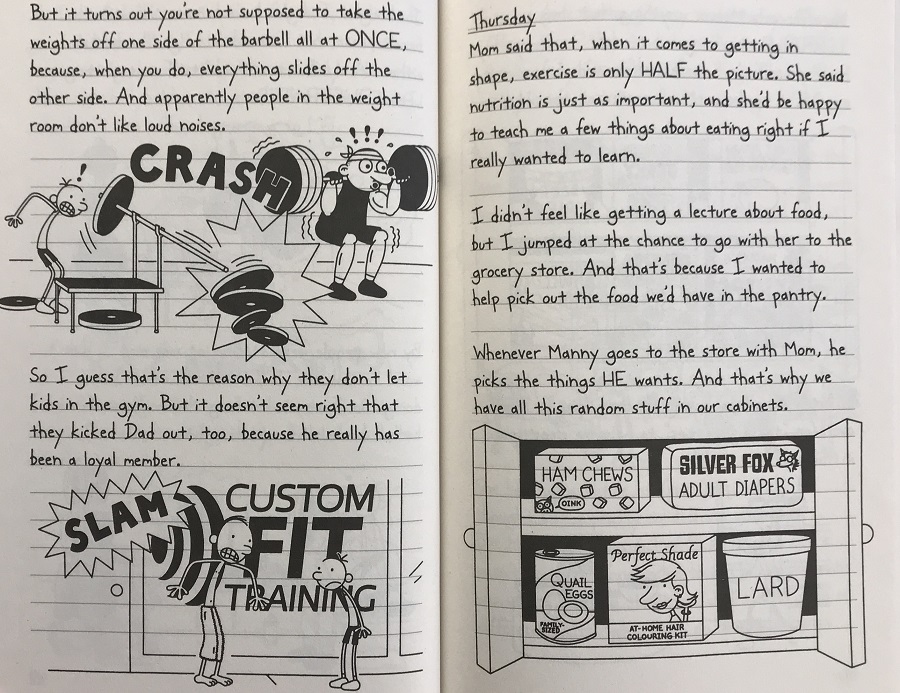 But it turns out you're not supposed to take the
weights off one side of the barbell all at ONCE,
because, when you do, everything slides off the
other side. And apparently people in the weight
room don't like loud noises.
!
CRASH
!!!
So I guess that's the reason why they don't let
kids in the gym. But it doesn't seem right that
they kicked Dad out, too, because he really has
been a loyal member.
SLAM
CUSTOM
FIT
TRAINING
Thursday
Mom said that, when it comes to getting in
shape, exercise is only HALF the picture. She said
nutrition is just as important, and she'd be happy
to teach me a few things about eating right if I
really wanted to learn.
I didn't feel like getting a lecture about food,
but I jumped at the chance to go with her to the
grocery store. And that's because I wanted to
help pick out the food we'd have in the pantry.
Whenever Manny goes to the store with Mom, he
picks the things HE wants. And that's why we
have all this random stuff in our cabinets.
HAM CHEWS
OINK
SILVER FOX
ADULT DIAPERS
QUAIL
EGGS
FAMILY-
SIZED
Perfect Shade
AT-HOME HAIR
COLOURING KIT
LARD